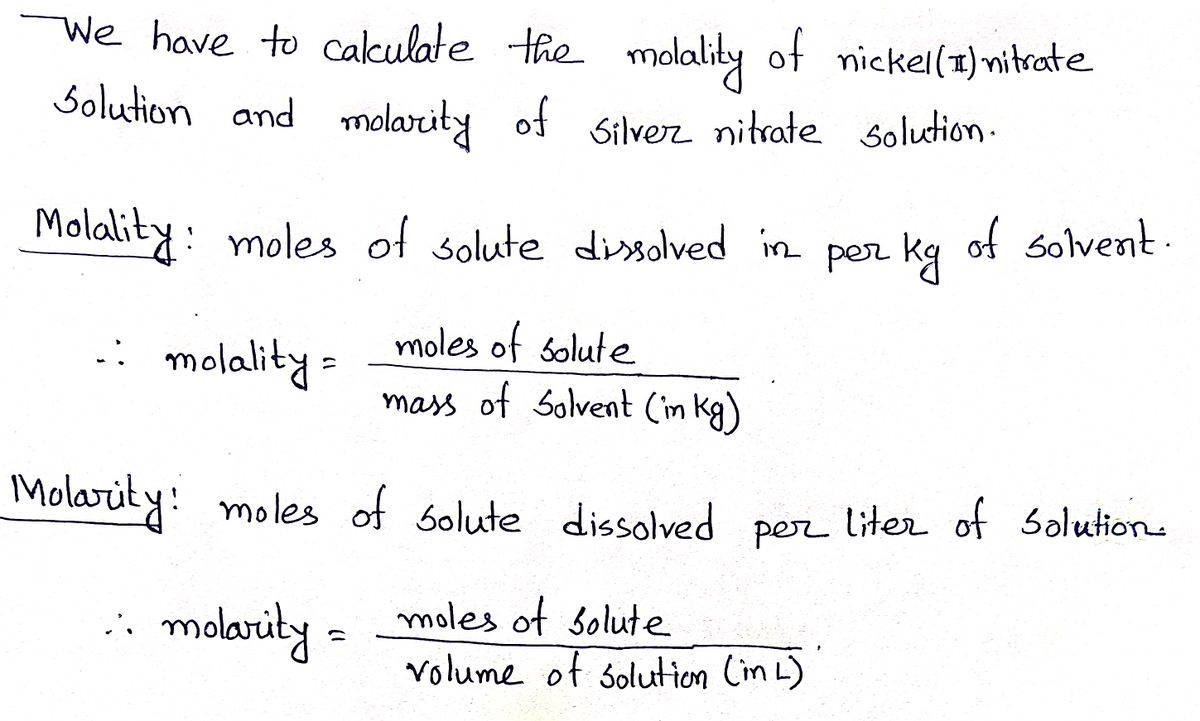 We have to calculate the molality of nickel(II) nitrate
solution and molarity of silver nitrate solution.
Molality: moles of solute dissolved in per kg of solvent.
∴ molality = moles of solute
mass of solvent (in kg)
Molarity: moles of solute dissolved per liter of solution.
∴ molarity = moles of solute
volume of solution (in L)